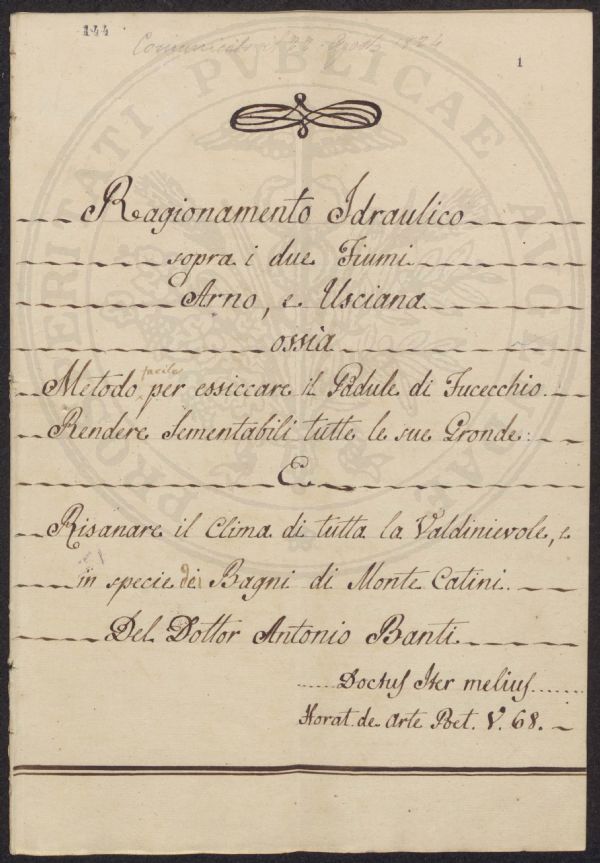 144
1
Ragionamento Idraulico
sopra i due Fiumi
Arno, e Usciana
ossìa
Metodo facile per essiccare il Padule di Fucecchio
Rendere Sementabili tutte le sue Gronde:
E
Risanare il Clima di tutta la Valdinievole, e
in specie dei Bagni di Monte Catini
Del Dottor Antonio Banti
Doctus Iter melius
Horat. de Arte Poet. V. 68.
PROSPERITATI PVBLICAE AVGENDAE